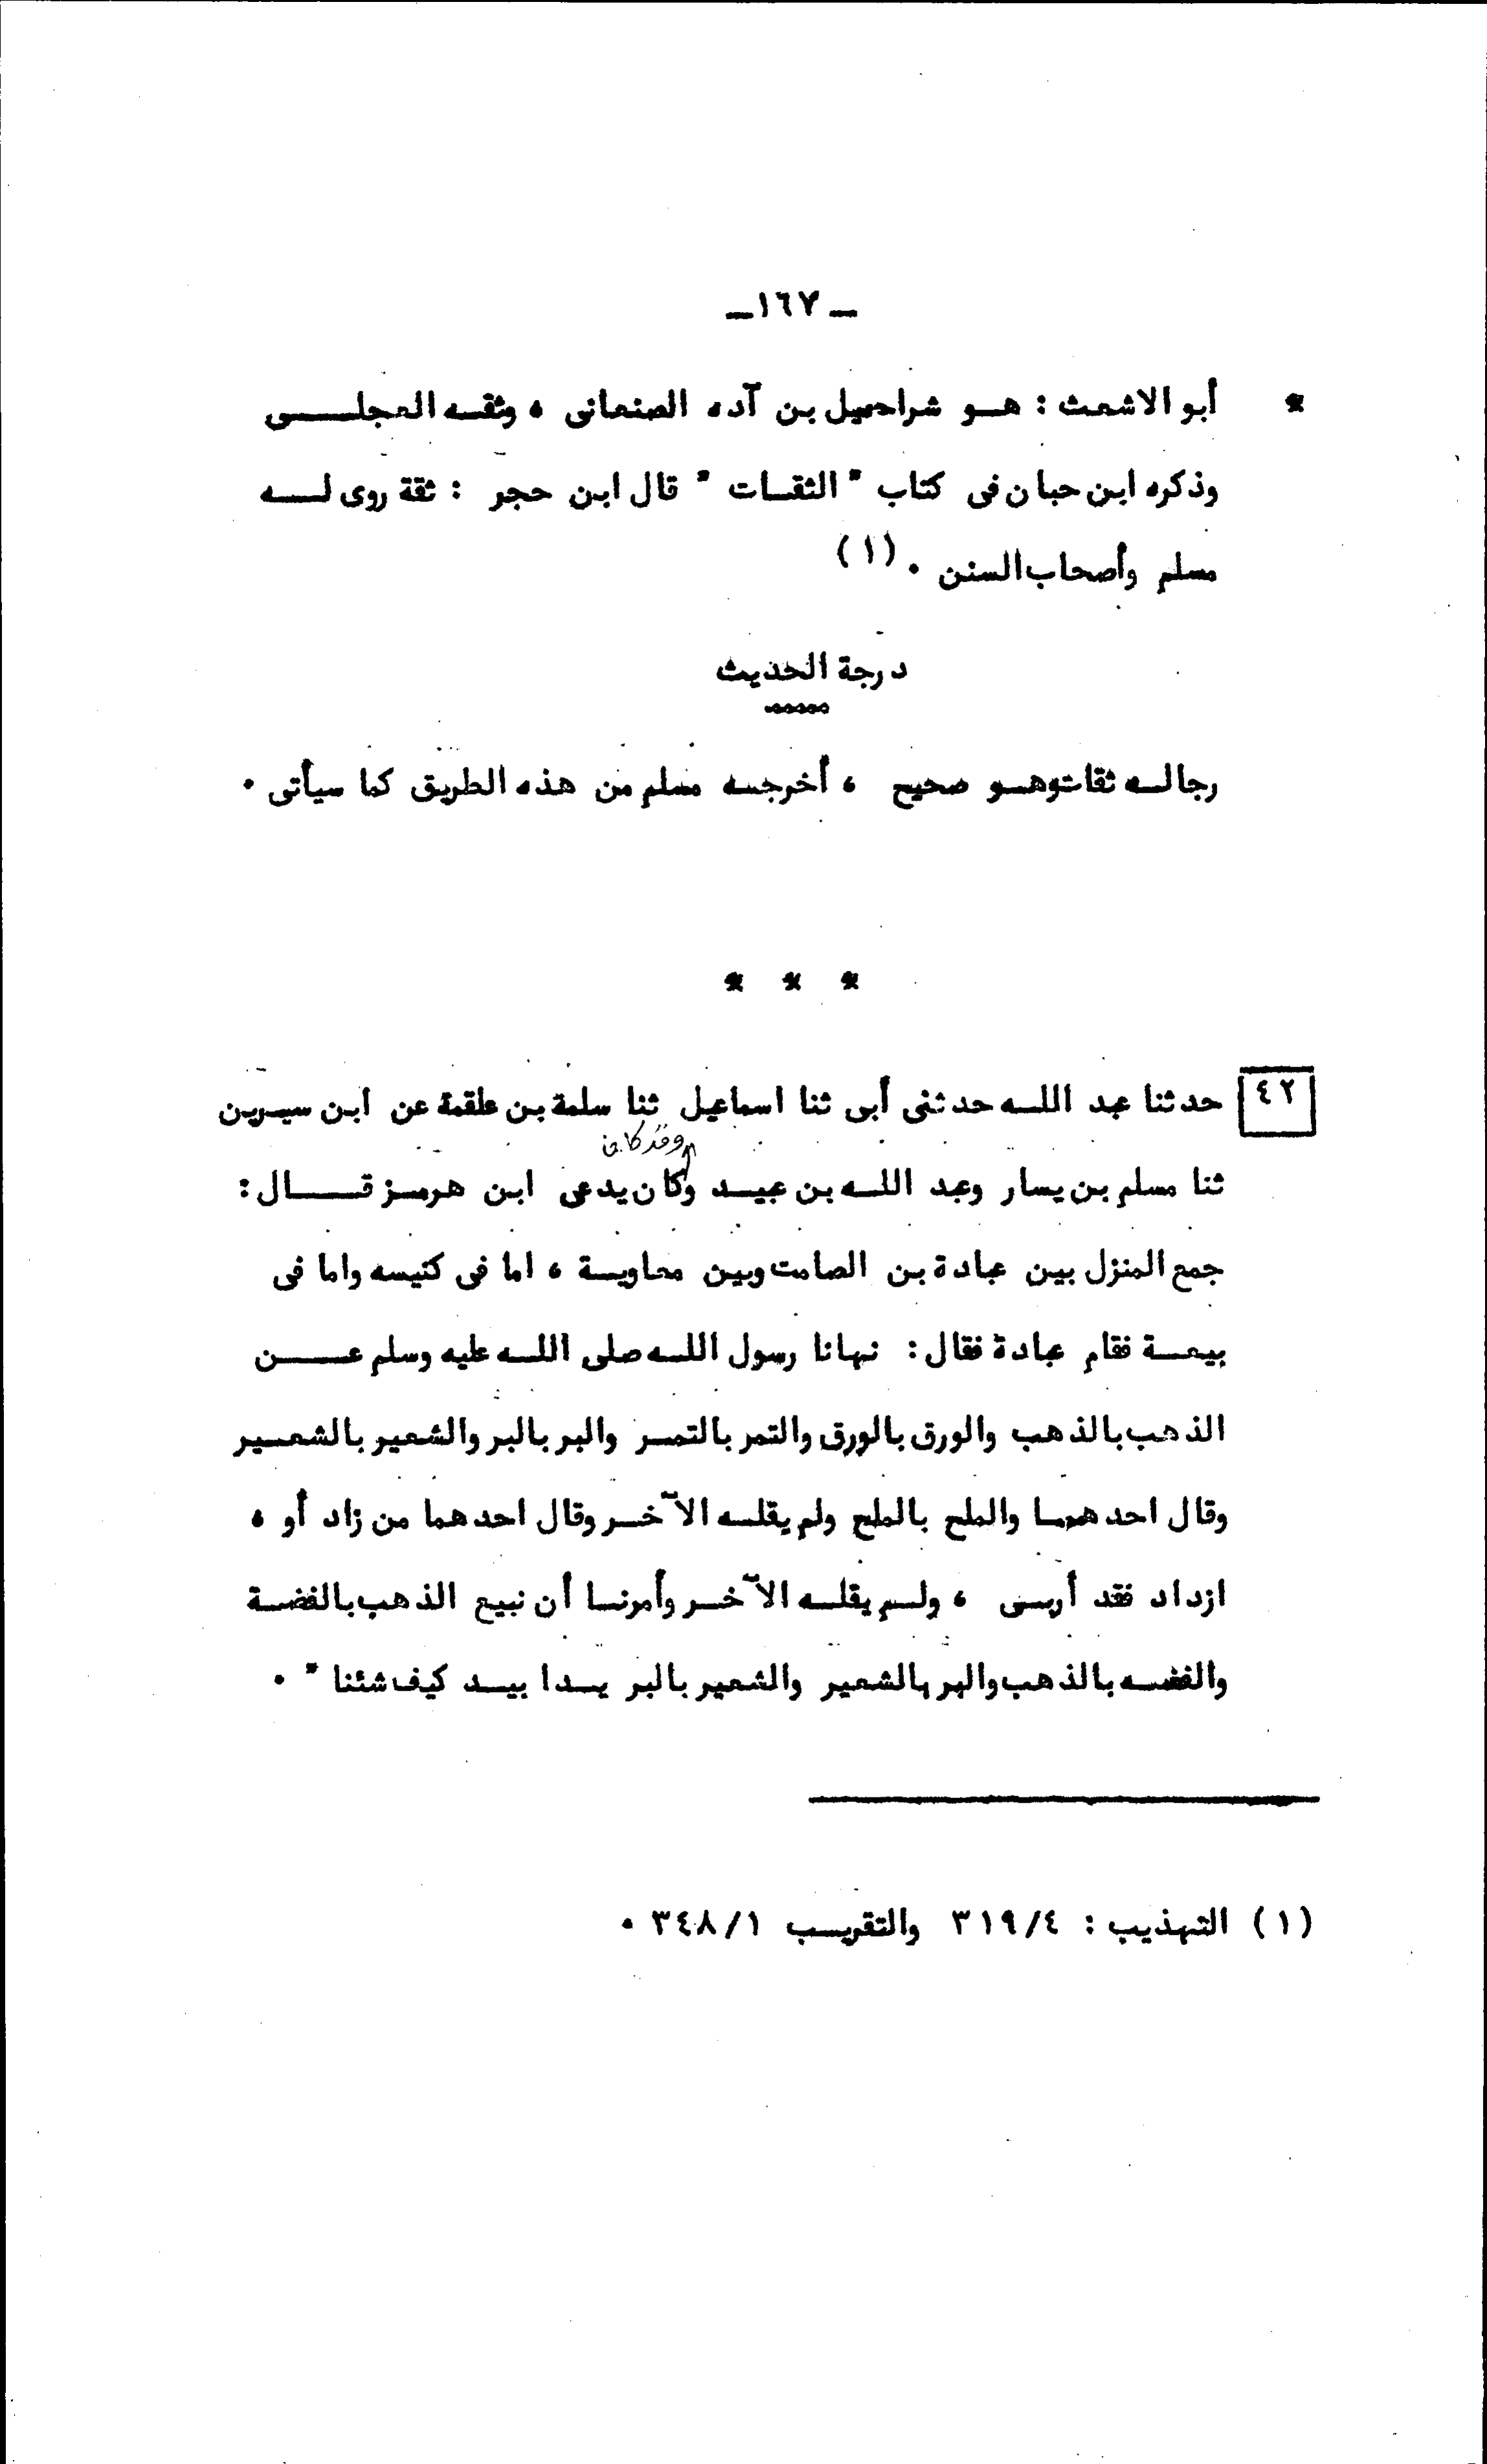 ـ ١٦٧ ـ
* أبو الاشعث : هـو شراحيل بن آده الصنعانى ، وثقـه العجلــى
وذكره ابن حبان فى كتاب " الثقـات " قال ابن حجر : ثقة روى لــه
مسلم وأصحاب السنن . (١)
درجة الحديث
رجالـه ثقات وهـو صحيح ، أخرجـه مسلم من هذه الطريق كما سيأتى .
* * *
٤٢ حدثنا عبد اللـه حدثنى أبى ثنا اسماعيل ثنا سلمة بن علقمة عن ابن سيـرين
وقد كان
ثنا مسلم بن يسار وعبد اللـه بن عبيـد وكان يدعى ابن هرمـز قــال :
جمع المنزل بين عبادة بن الصامت وبين معاويـة ، اما فى كنيسه واما فى
بيعـة فقام عبادة فقال : نهانا رسول اللـه صلى اللـه عليه وسلم عــن
الذهب بالذهب والورق بالورق والتمر بالتمـر والبر بالبر والشعير بالشعـير
وقال احدهمـا والملح بالملح ولم يقلـه الآخـر وقال احدهما من زاد أو ،
ازداد فقد أربـى ، ولـم يقلـه الآخـر وأمرنـا أن نبيع الذهب بالفضـة
والفضـه بالذهب والبر بالشعير والشعير بالبر يـدا بيـد كيف شئنا " .
(١) التهذيب : ٣١٩/٤ والتقريـب ٣٤٨/١ .